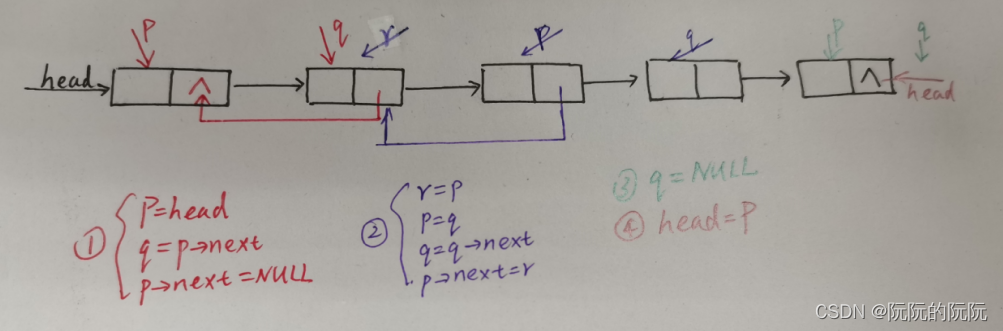 p q r p q p q
head ∧ ∧ head
① p=head
q=p→next
p→next=NULL
② r=p
p=q
q=q→next
p→next=r
③ q=NULL
④ head=P
CSDN @阮阮的阮阮